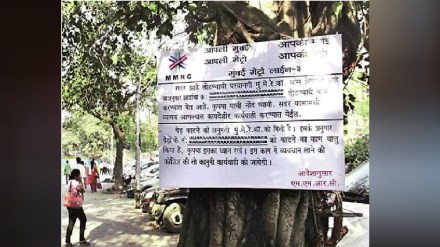 आपली मुंबई आपकी मुंबई
आपली मेट्रो आपकी मेट्रो
MMRC
मुंबई मेट्रो लाईन-३
सदर झाडे तोडण्याची परवानगी मुं.मे.रे.कॉ.
तोडण्याचे काम
करण्यात येत आहे. कृपया याची नोंद घ्यावी. सदर कामामध्ये
व्यत्यय आणल्यास कायदेशीर कार्यवाही करण्यात येईल.
पेड़ काटने की अनुमती मुं.मे.रे.कॉ. को मिली है। इसके अनुसार
पेड़ों के को काटने का काम चालु
किया है, कृपया इसका ध्यान रखें। इस काम में व्यवधान लाने की
कोशिश की तो कानूनी कार्यवाही की जायेगी।
आदेशानुसार
एम.एम.आर.सी.